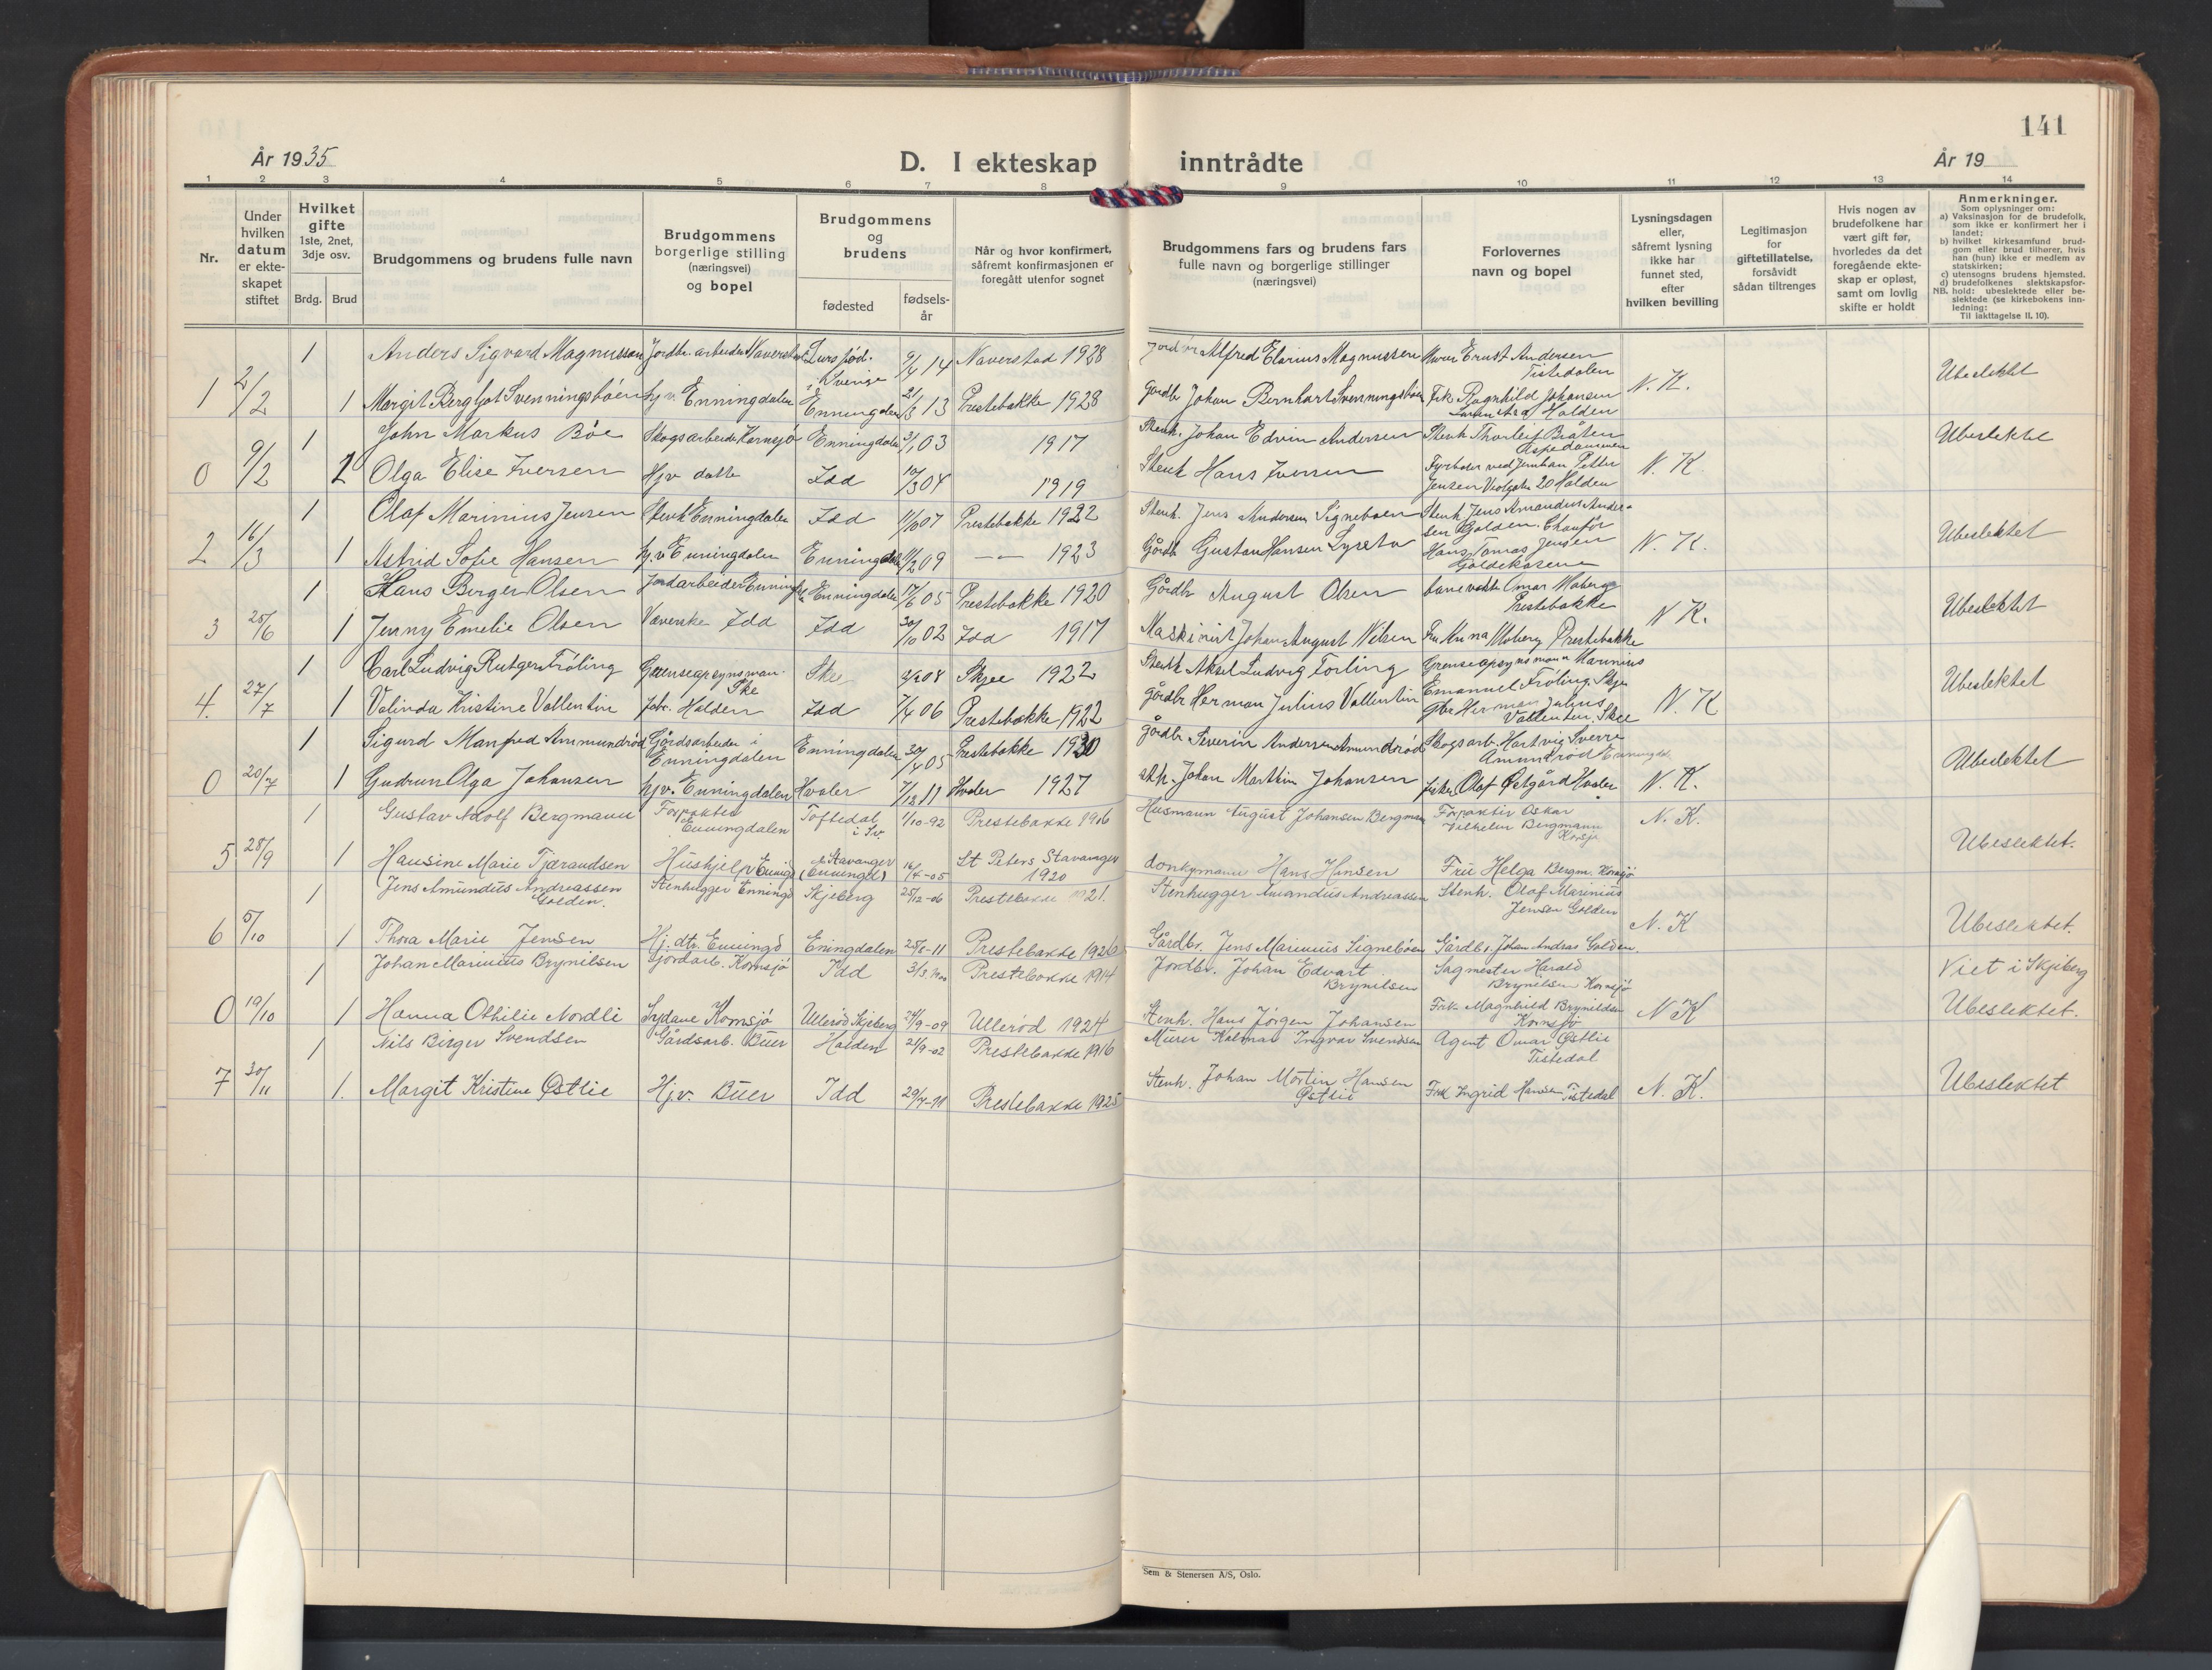 141
År 1935
D. I ekteskap inntrådte
År 19
1 2 3 4 5 6 7 8 9 10 11 12 13 14
Nr.
Under hvilken datum er ekteskapet stiftet
Hvilket gifte 1ste, 2net, 3dje osv.
Brdg. Brud
Brudgommens og brudens fulle navn
Brudgommens borgerlige stilling (næringsvei) og bopel
Brudgommens og brudens
fødested
fødselsår
Når og hvor konfirmert, såfremt konfirmasjonen er foregått utenfor sognet
Brudgommens fars og brudens fars fulle navn og borgerlige stillinger (næringsvei)
Forlovernes navn og bopel
Lysningsdagen eller, såfremt lysning ikke har funnet sted, efter hvilken bevilling
Legitimasjon for giftetillatelse, forsåvidt sådan tiltrenges
Hvis nogen av brudefolkene har vært gift før, hvorledes da det foregående ekteskap er opløst, samt om lovlig skifte er holdt
Anmerkninger.
Som oplysninger om:
a) Vaksinasjon for de brudefolk, som ikke er konfirmert her i landet;
b) hvilket kirkesamfund brudgom eller brud tilhører, hvis han (hun) ikke er medlem av statskirken;
c) utensogns brudens hjemsted.
d) brudefolkenes slektskapsforhold: ubeslektede eller beslektede (se kirkebokens innledning:
NB.
Til iakttagelse II. 10).
1 Anders Sigvard Magnussen Jordbr. arbeider Naverstad Lurs fød. i Sverige 9/4 14 Naverstad 1928 Alfred Elarius Magnussen Murer Ernst Andersen Tistedalen
1 2/2 1 Margit Bergljot Svenningsbøen hj.v. Enningdalen Enningdalen 21/3 13 Prestebakke 1928 Gårdbr Johan Bernhart Svenningsbøen Frk. Ragnhild Johansen Halden N. K. Ubeslektet
1 John Markus Bøe Skogsarbeider Kornsjø Enningdalen 3/1 03 1917 Stenh. Johan Edvin Andersen Stenh Thorleif Bråten Aspedammen Ubeslektet
0 9/2 2 Olga Elise Iversen Hjv datte Idd 10/3 04 1919 Stenh Hans Iversen Fyrbøter ved Jernban Petter Jensen 20 Halden N. K.
1 Olaf Marinius Jensen Stenh Enningdalen Idd 11/8 07 Prestebakke 1922 Stenh. Jens Andersen Signebøen Stenh. Jens Amandus Andersen Golden. Chaufør
2 16/3 1 Astrid Sofie Hansen hj.v. Enningdalen Enningdalen 11/2 09 — — 1923 Gårdb Gustav Hansen Hans Tomas Jensen N. K. Ubeslektet
1 Hans Birger Olsen Jordarbeider Enningdalen Enningdalen 17/6 05 Prestebakke 1920 Gårdbr August Olsen banevokte Omar Moberg Prestebakke
3 25/6 1 Jenny Emelie Olsen Væverske Idd Idd 30/10 02 Idd 1917 Maskinist Johan August Nilsen Fru Anna Moberg Prestebakke N K. Ubeslektet
1 Carl Ludvig Rutger Frøling Grenseopsynsman. Ske Skee 2/2 08 Skjee 1922 Stenh Aksel Ludvig Torling Grenseopsynsmann Marinius Emanuel Frøling Skje
4. 27/7 1 Valinda Kristine Vallentin Halden Idd 7/4 06 Prestebakke 1922 Gårdbr Herman Julius Vallentin Gbr Herman Julius Vallentin, Skee N. K Ubeslektet
1 Sigurd Manfred Ammundrød Gårdsarbeider i Enningdalen Enningdalen 30/4 05 Prestebakke 1920 Gårdbr Severin Andersen Amundrød Skogsarb. Hartvig Sverre Amundrød Enningdl.
0 20/7 1 Gudrun Olga Johansen hjv. Enningdalen Hvaler 7/12 11 Hvaler 1927 Johan Marthin Johansen fisker Olaf Østgård Hvaler N. K. Ubeslektet
1 Gustav Adolf Bergmann Forpakter Enningdalen Töftedal i Sv. 1/10-92 Prestebakke 1906 Husmann August Johansen Bergman Forpakter Oskar Vilhelm Bergmann Korsjø N. K.
5 28/9 1 Hansine Marie Tjærandsen Hushjelp Enning Stavanger (Enningd) 14/4-05 St Peters Stavanger 1920 donkymann Hans Hansen Frü Helga Bergm. Kornsjø Ubeslektet.
1 Jens Amundüs Andreassen Golden. Stenhugger Enningd Skjeberg 25/12-06 Prestebakke 1921. Stenhugger Amandüs Andreassen Stenh. Olaf Marinius Jensen Golden
6 5/10 1 Thora Marie Jensen Hj. dtr. Enningd Eningdalen 25/8-11 Prestebakke 1926 Gårdbr. Jens Marinius Signebøen Gårdbr. Johan Andras Golden N. K Ubeslektet.
1 Johan Marinius Brynilsen Gjordarb. Kornsjø Idd 3/3.1900 Prestebakke 1914 Jordbr. Johan Edvart Brynilsen Sagmester Harald Brynilsen Kornsjø Viet i Skjeberg
0 19/10 1 Hanna Othilie Nordli Sydame Kornsjø Ullerød Skjeberg 24/9-09 Ullerød 1924 Stenh. Hans Jörgen Johansen Frk. Magnhild Brynildsen Kornsjø N K Ubeslektet.
1 Nils Birger Svendsen Gårdsarb. Büer Halden 21/9-02 Prestebakke 1916 Mürer Kalmar Ingvar Svendsen Agent Omar Østlie Tistedal
7 30/11 1. Margit Kristine Østlie Hj.v. Büer Idd 29/7-11 Prestebakke 1925 Stenh. Johan Martin Hansen Østlie Frk Ingrid Hansen Tistedal N. K. Ubeslektet
Sem & Stenersen A/S, Oslo.